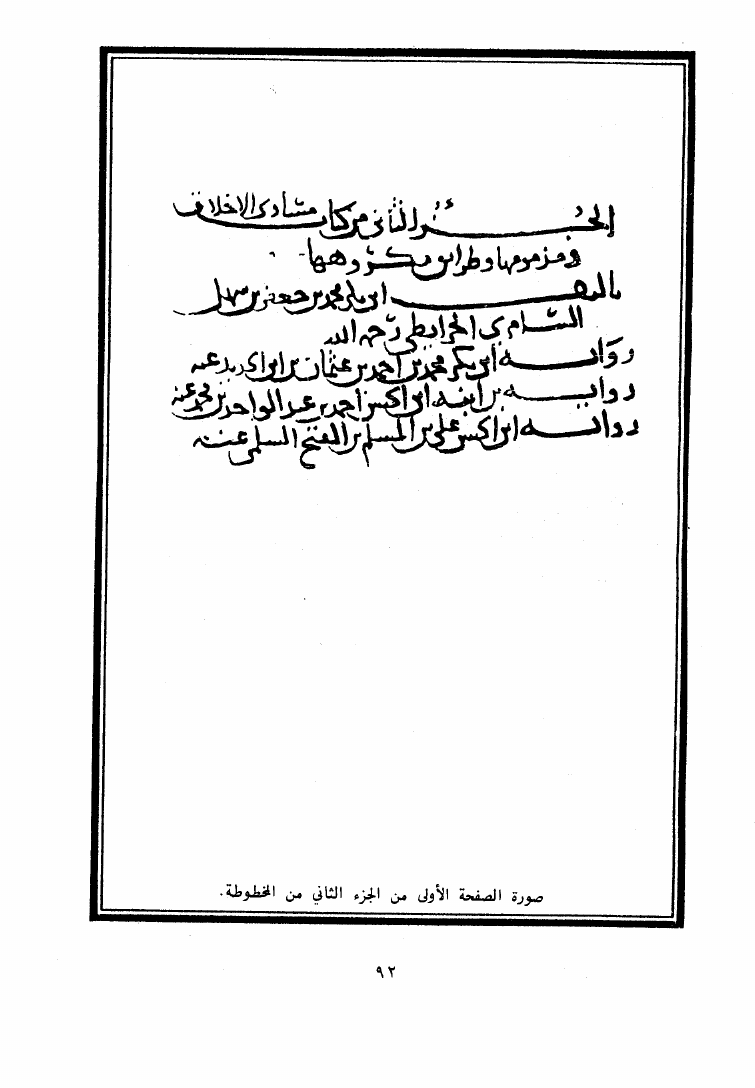 الجزء الثاني من كتاب مساوئ الاخلاق
ومذمومها وطرائق مكروهها
تاليف ابي بكر محمد بن جعفر بن سهل
السامري الخرايطي رحمه الله
رواية ابي بكر محمد بن احمد بن عثمان بن ابي الحديد عنه
رواية بن ابنه ابي الحسن احمد بن عبد الواحد بن محمد عنه
رواية ابي الحسن علي بن المسلم بن الفتح السلمي عنه
صورة الصفحة الأولى من الجزء الثاني من المخطوطة.
٩٢